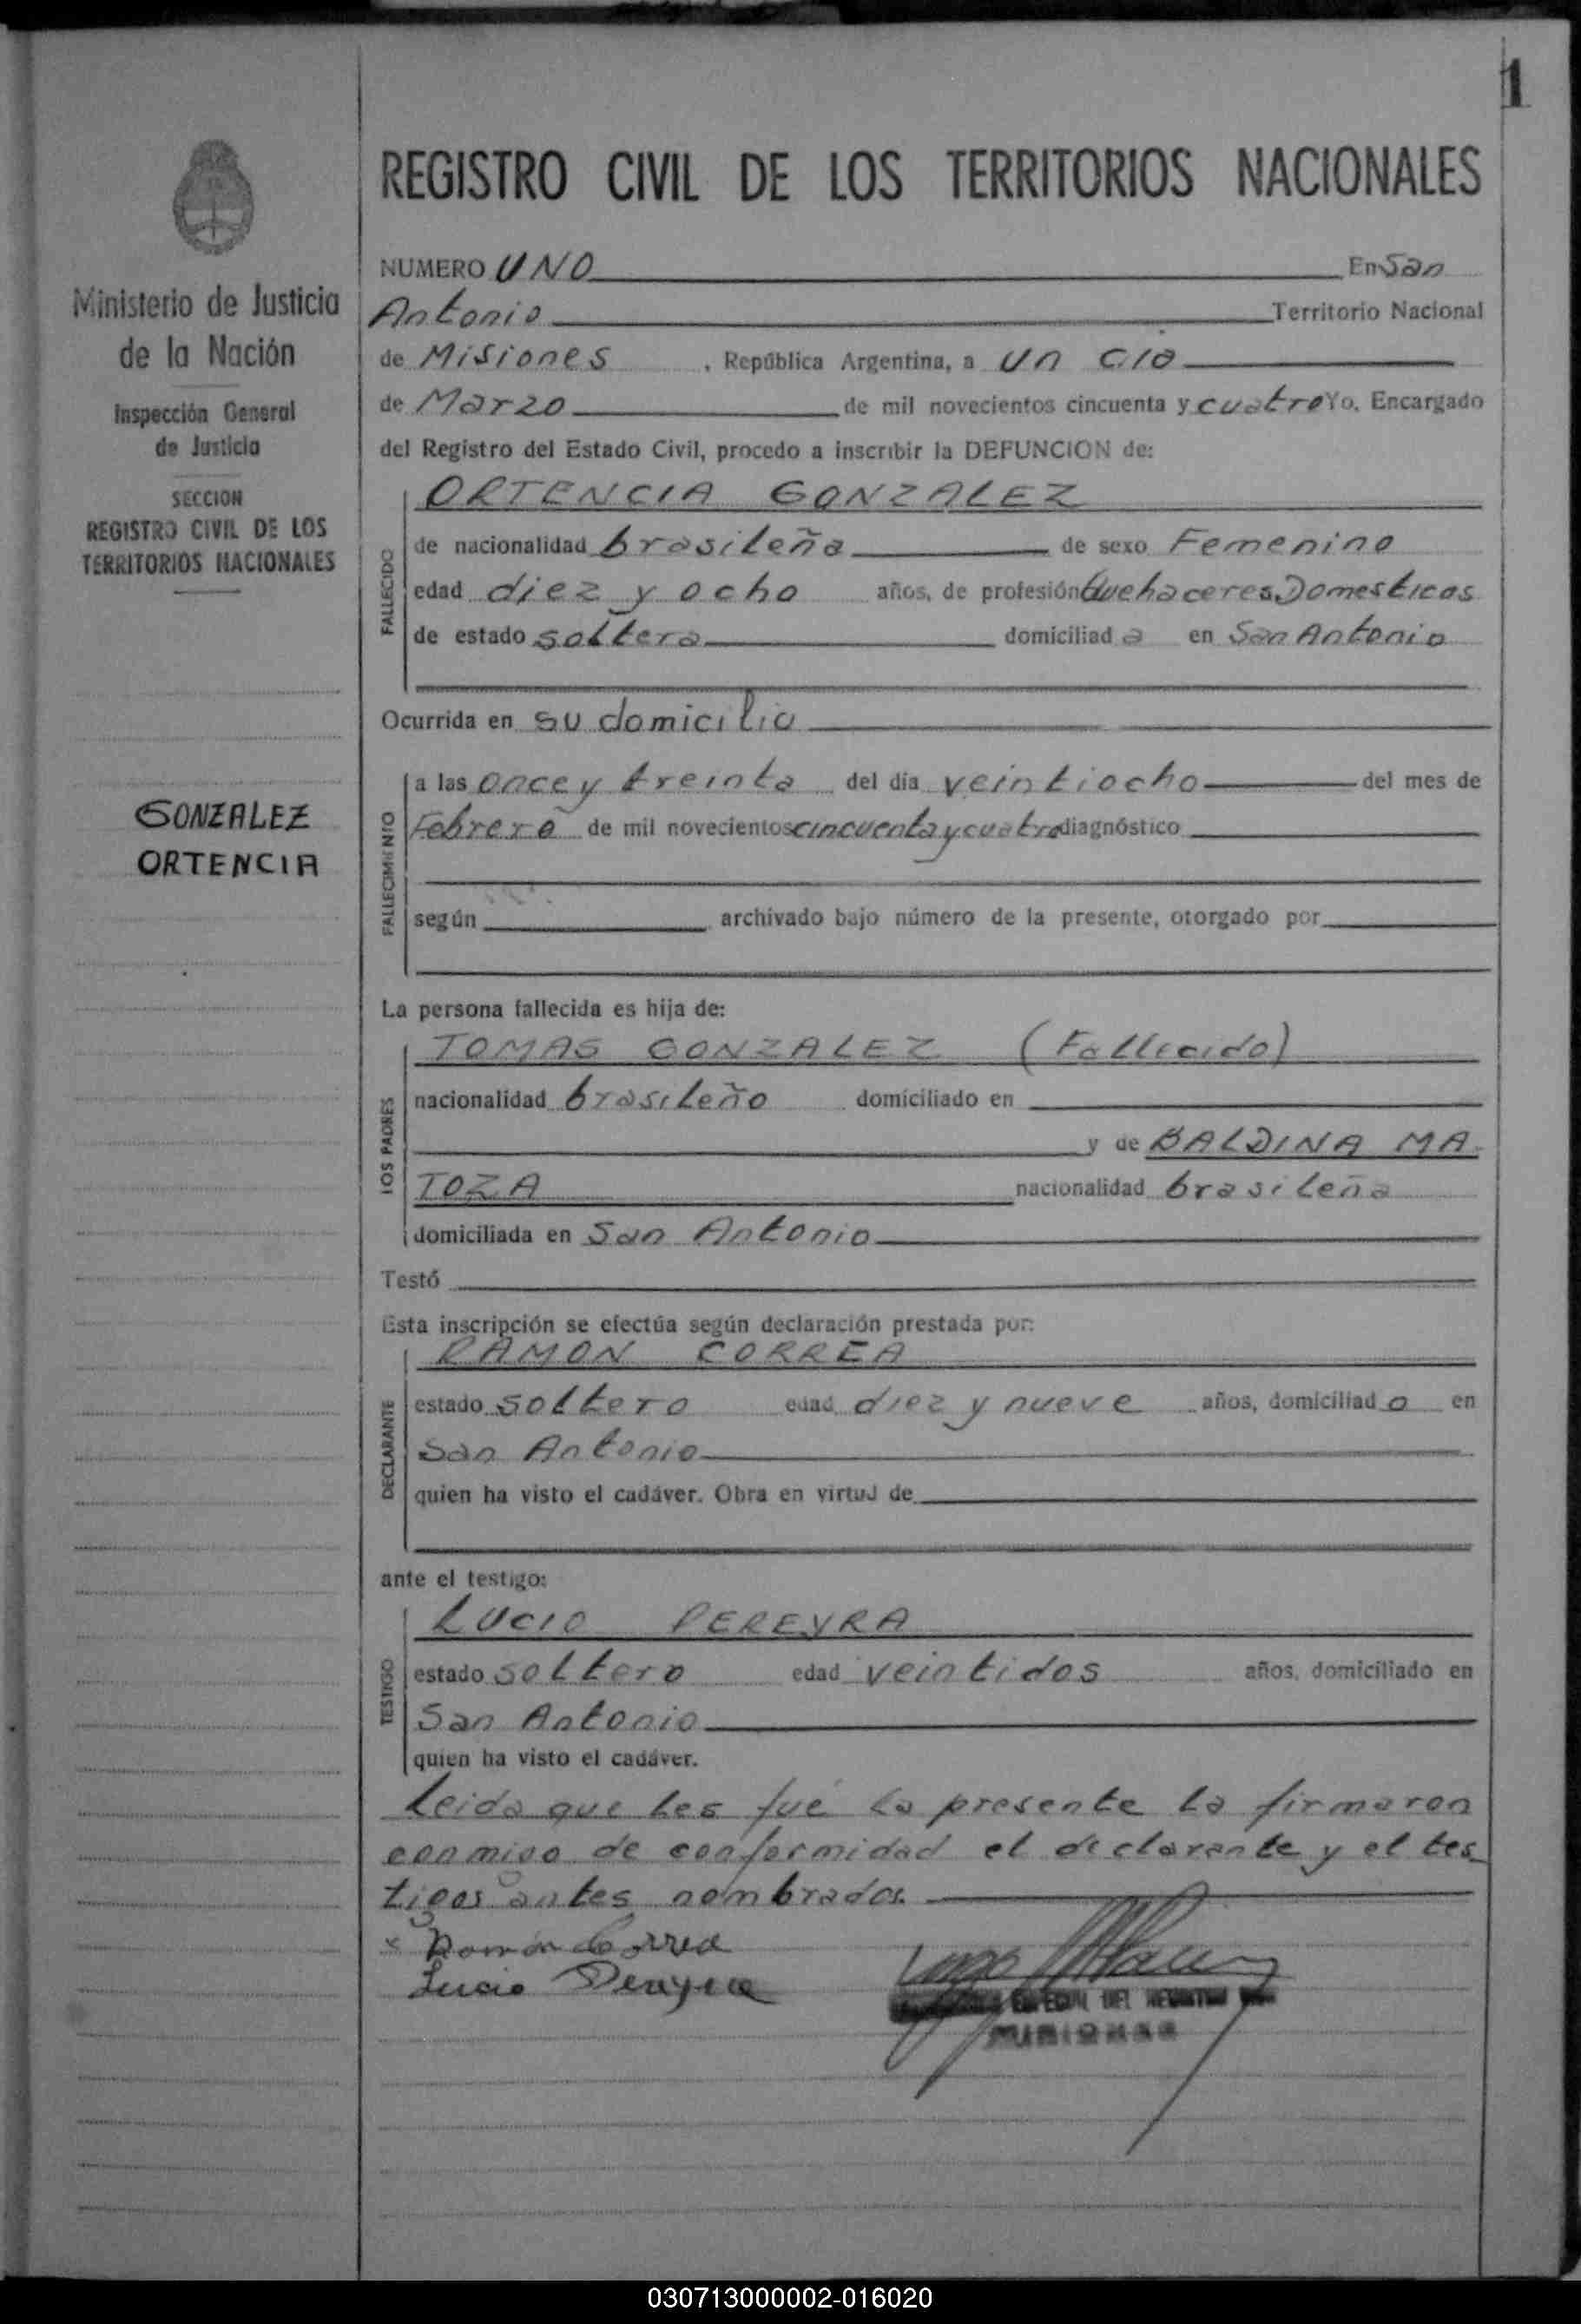 1
REGISTRO CIVIL DE LOS TERRITORIOS NACIONALES
Ministerio de Justicia
de la Nación
Inspección General
de Justicia
SECCION
REGISTRO CIVIL DE LOS
TERRITORIOS NACIONALES
GONZALEZ
ORTENCIA
NUMERO UNO En San
Antonio Territorio Nacional
de Misiones, República Argentina, a un dia
de Marzo de mil novecientos cincuenta y cuatro Yo, Encargado
del Registro del Estado Civil, procedo a inscribir la DEFUNCION de:
FALLECIDO
ORTENCIA GONZALEZ
de nacionalidad brasileña de sexo Femenino
edad diez y ocho años, de profesión Quehaceres Domesticos
de estado soltera domiciliad a en San Antonio
Ocurrida en su domicilio
FALLECIMIENTO
a las once y treinta del día veintiocho del mes de
Febrero de mil novecientos cincuenta y cuatro diagnóstico
según archivado bajo número de la presente, otorgado por
La persona fallecida es hija de:
LOS PADRES
TOMAS GONZALEZ (Fallecido)
nacionalidad brasileño domiciliado en
y de BALDINA MA-
TOZA nacionalidad brasileña
domiciliada en San Antonio
Testó
Esta inscripción se efectúa según declaración prestada por:
DECLARANTE
RAMON CORREA
estado soltero edad diez y nueve años, domiciliad o en
San Antonio
quien ha visto el cadáver. Obra en virtud de
ante el testigo:
TESTIGO
LUCIO PEREYRA
estado soltero edad veintidos años, domiciliado en
San Antonio
quien ha visto el cadáver.
Leida que les fué la presente la firmaron
conmigo de conformidad el declarante y el tes-
tigos antes nombrados.
x Ramón Correa
Lucio Pereyra
ESPECIAL DEL REGISTRO
MISIONES
030713000002-016020